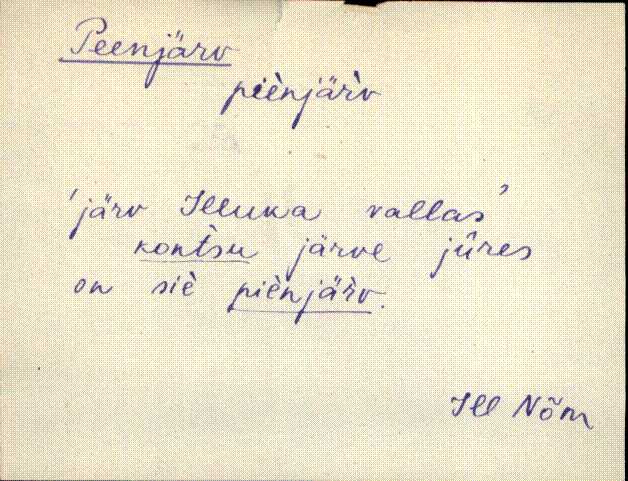 Peenjärv
piènjär̀v
'järv Illuka vallas'
kontsu järve jûres
on siè piènjär̀v.
Ill Nõm